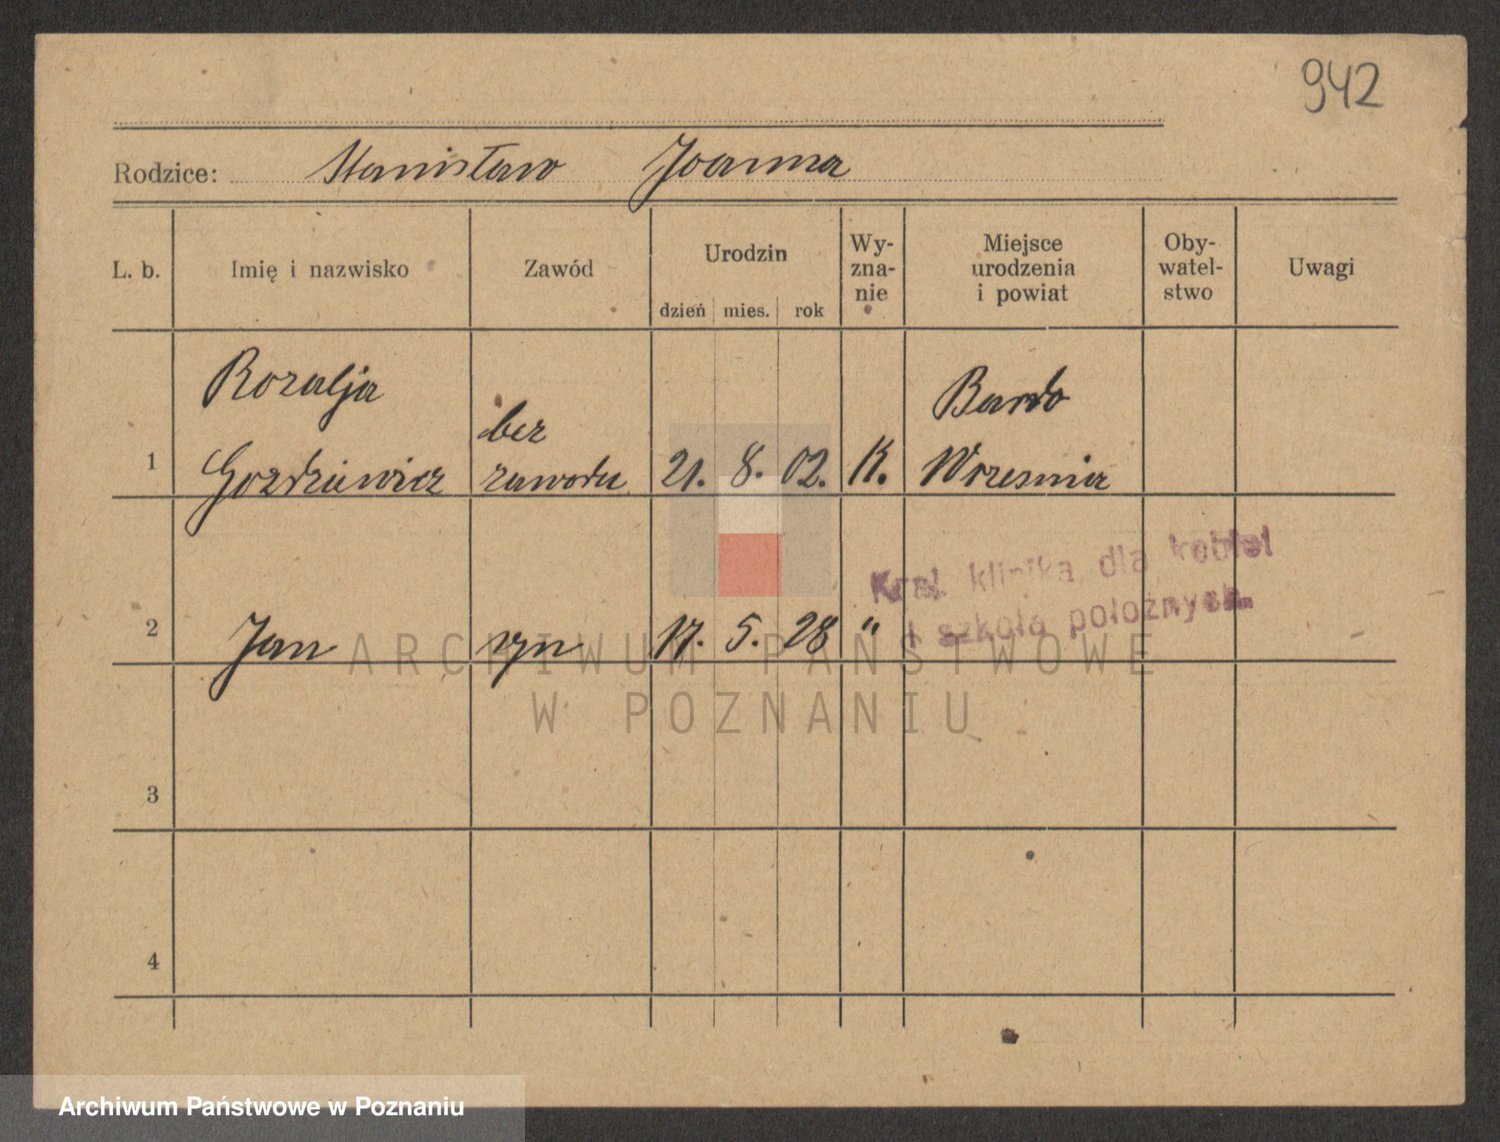 942
Rodzice: Stanisław Joanna
L. b. Imię i nazwisko Zawód Urodzin Wy-zna-nie Miejsce urodzenia i powiat Oby-watel-stwo Uwagi
dzień mies. rok
Rozalja bez Bardo
1 Gozdziewicz zawodu 21. 8. 02. K. Wrzesnia
Kral. klinika dla kobiet
i szkoła położnych.
2 Jan syn 17. 5. 28 "
ARCHIWUM PAŃSTWOWE
W POZNANIU
3
4
Archiwum Państwowe w Poznaniu